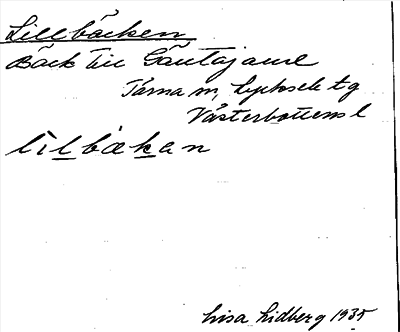 Lillbäcken
Bäck till Gäutajaure
Tärna sn, Lycksele tg
Västerbottens l
lilbækan
Lisa Lidberg 1935